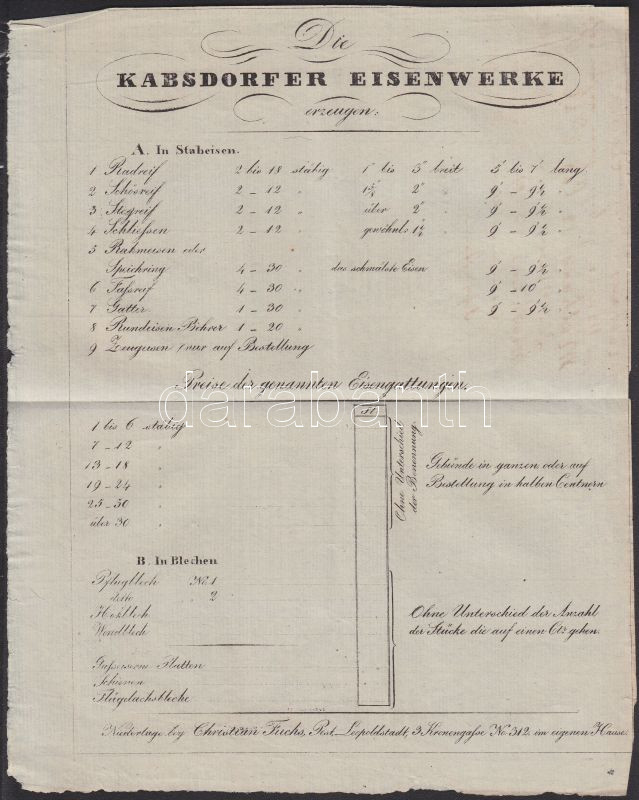 Die
KABSDORFER EISENWERKE
erzeugen:
A. In Stabeisen.
1 Radreif 2 bis 18 stäbig 1" bis 3" breit 5' bis 7' lang.
2 Schösreif 2 - 12 " 1¾ 2" " 9' - 9½ "
3 Stegreif 2 - 12 " über 2" " 9' - 9½ "
4 Schliessen 2 - 12 " gewöhnls 1½ " 9' - 9½ "
5 Rahmeisen oder
Speichring 4 - 30 " das schmälste Eisen 9' - 9½ "
6 Faßreif 4 - 30 " 9' - 10' "
7 Gatter 1 - 30 " 9' - 9½ "
8 Rundeisen Böhrer 1 - 20 "
9 Zeugeisen nur auf Bestellung
Preise der genannten Eisengattungen.
fl
1 bis 6 stäbig
7 - 12 "
13 - 18 "
19 - 24 "
25 - 30 "
über 30 "
Ohne Unterschied
der Benennung.
Gebünde in ganzen oder auf
Bestellung in halben Centnern
B. In Blechen
Pflugblech No. 1
detto " 2
Hoßblech
Wendblech
Gußeiserne Platten
Schienen
Flügelachsbleche
Ohne Unterschied der Anzahl
der Stücke die auf einen Ctr gehen.
Niederlage bey Christian Fuchs, Pest, Leopoldstadt, 3 Kronengaße No. 312. im eigenen Hause.
darabanth